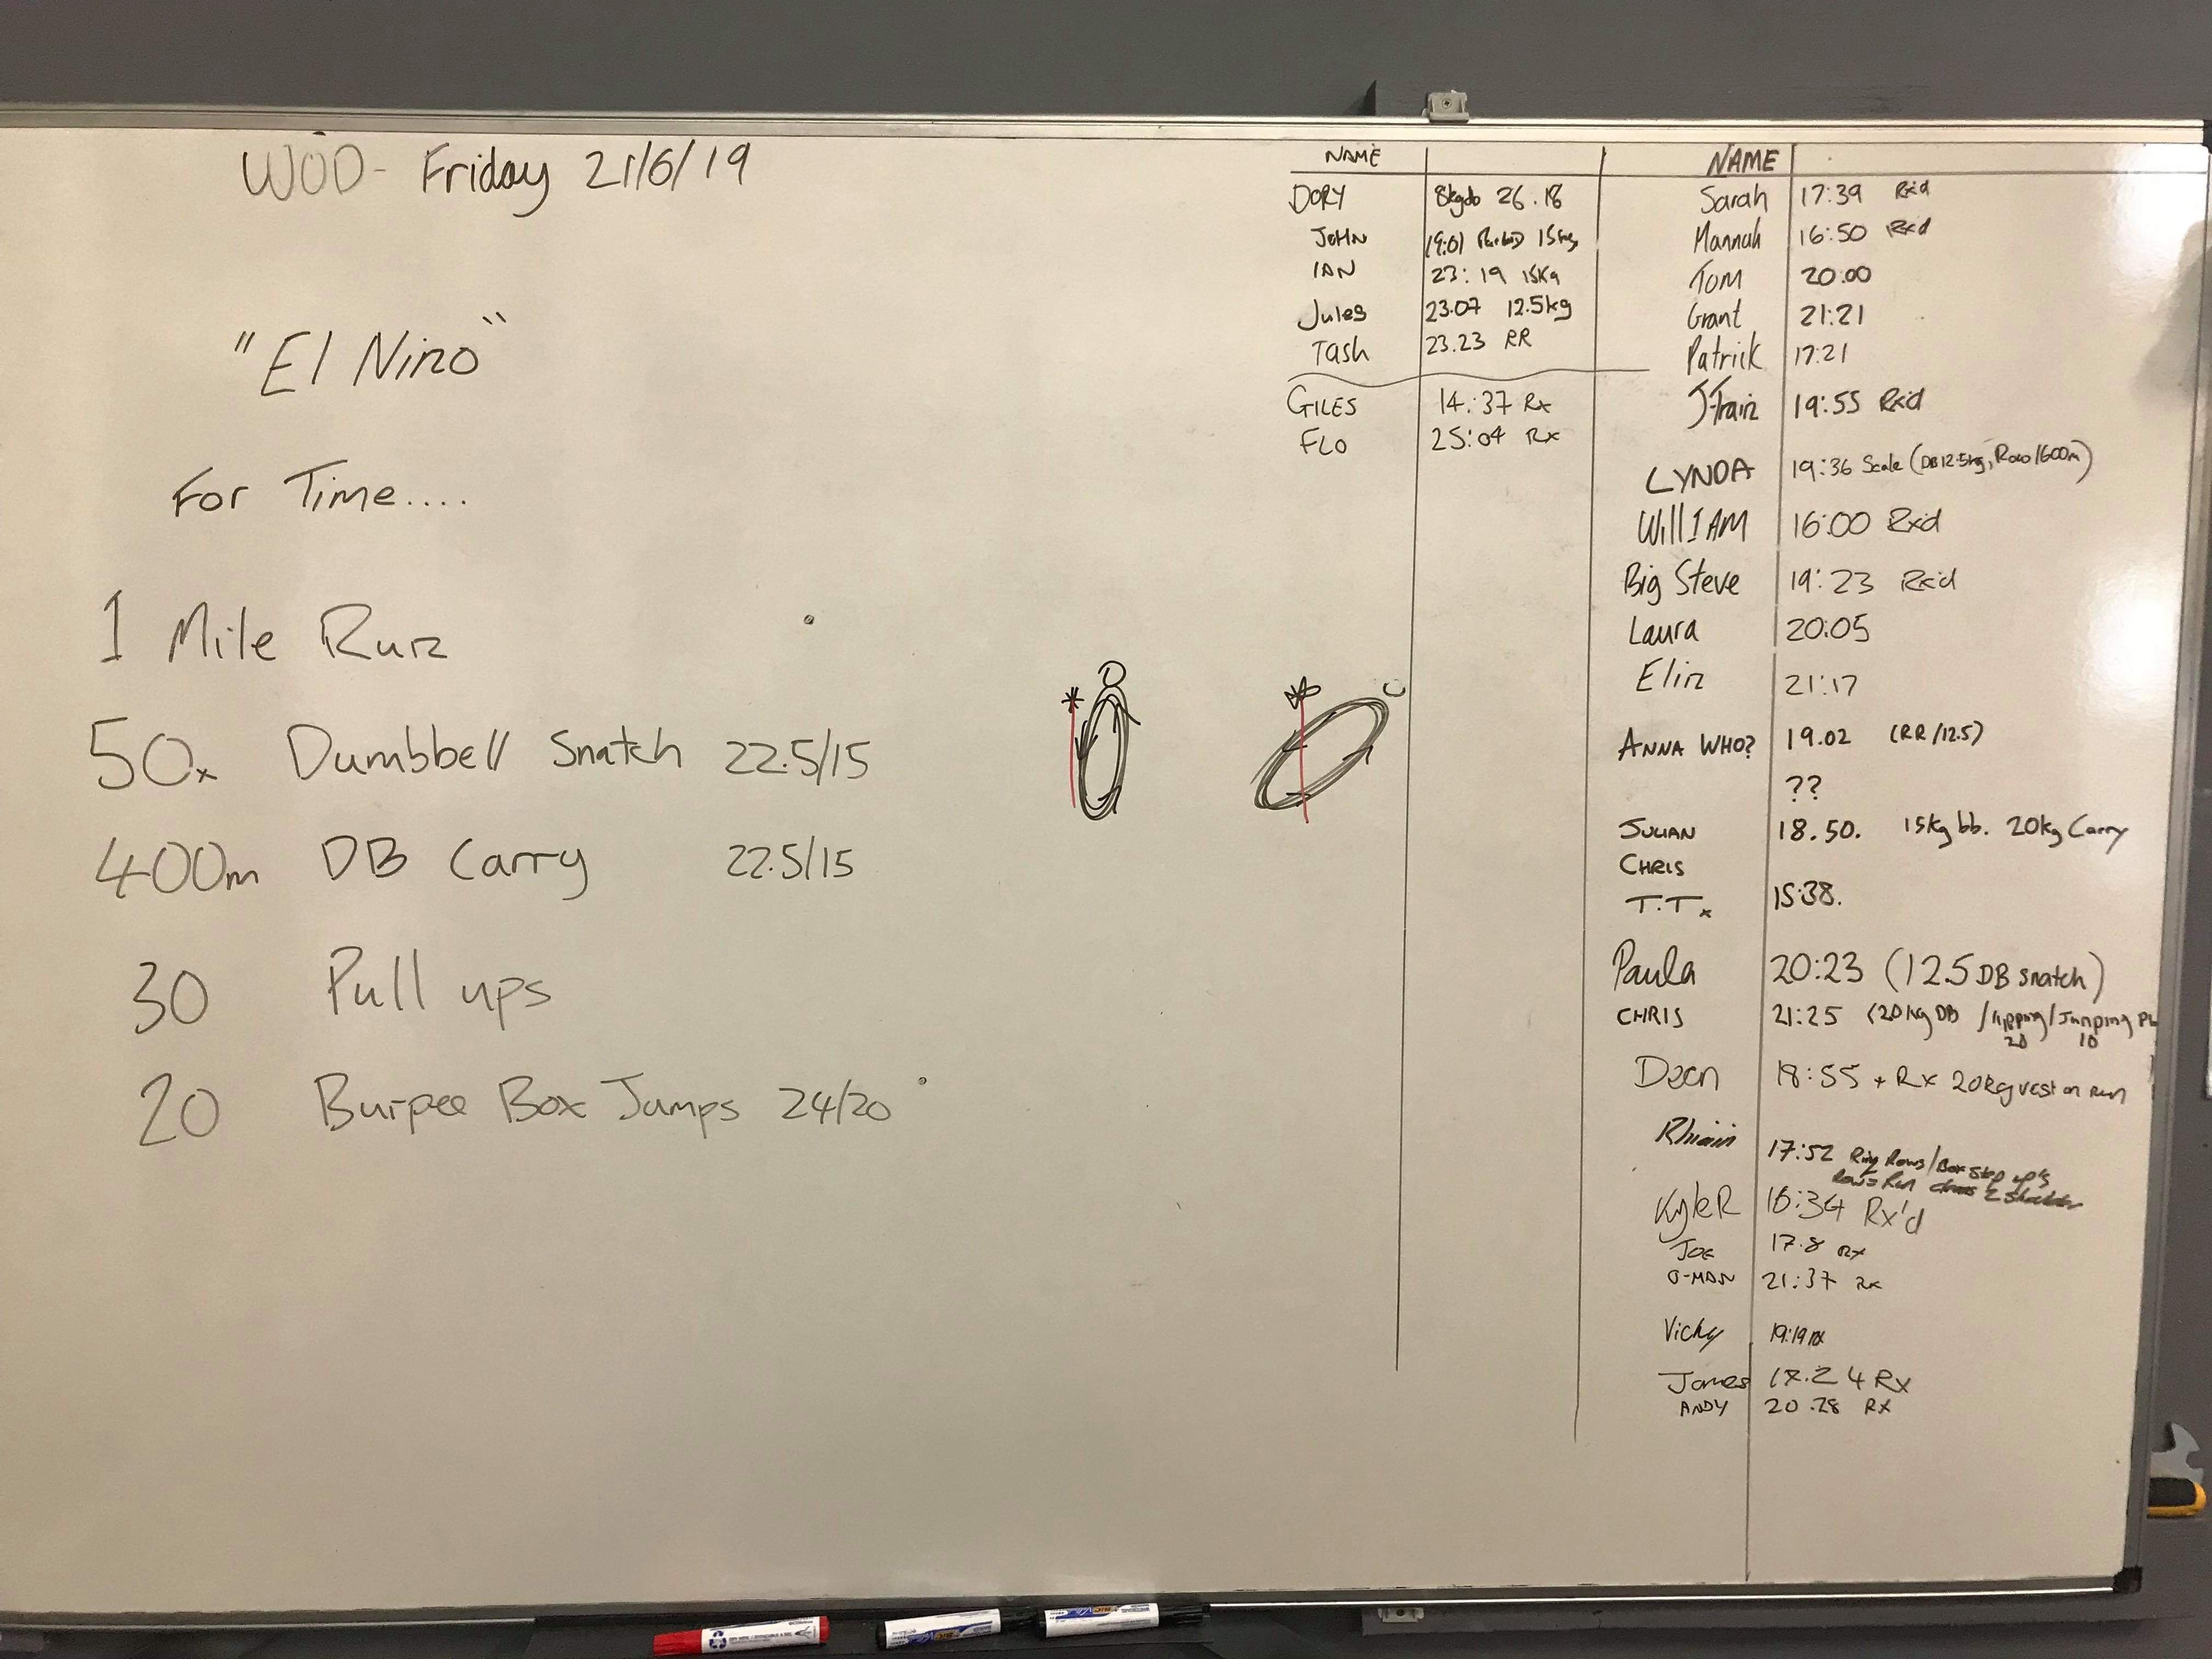 WOD - Friday 21/6/19
"El Nino"
For Time....
1 Mile Run
50x Dumbbell Snatch 22.5/15
400m DB Carry 22.5/15
30 Pull ups
20 Burpee Box Jumps 24/20
NAME
DORY 8kgdb 26.18
JOHN 19:01 15kg
IAN 23:19 15Kg
Jules 23.07 12.5kg
Tash 23.23 RR
GILES 14:37 Rx
FLO 25:04 Rx
NAME
Sarah 17:39 Rxd
Hannah 16:50 Rxd
Tom 20:00
Grant 21:21
Patrick 17:21
J-Train 19:55 Rxd
LYNDA 19:36 Scale (DB12.5kg, Row 1600m)
WillIAM 16:00 Rxd
Big Steve 19:23 Rx'd
Laura 20:05
Elin 21:17
ANNA WHO? 19.02 (RR/12.5)
??
JULIAN 18.50. 15kg bb. 20kg Carry
CHRIS
T.T.x 15:38.
Paula 20:23 (12.5 DB snatch)
CHRIS 21:25 (20kg DB /kipping/Jumping PU
20 10
Dean 18:55 + Rx 20kg vest on run
17:52 Ring Rows/Box step up's
Row = Run
KyleR 16:34 Rx'd
JOE 17.8 Rx
G-MAN 21:37 Rx
Vicky 19:19 rx
James 17.24 Rx
ANDY 20.28 RX
BIC
BIC